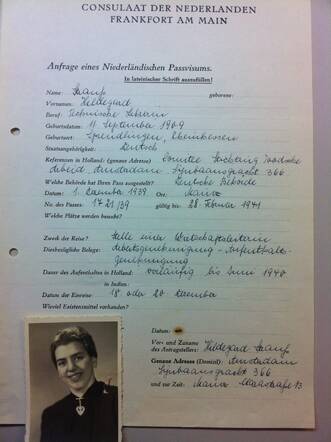 CONSULAAT DER NEDERLANDEN
FRANKFORT AM MAIN
Anfrage eines Niederländischen Passvisums.
In lateinischer Schrift auszufüllen!
Name: geborene:
Vornamen: Hildegard
Beruf: Technische Lehrerin
Geburtsdatum: 11 September 1909
Geburtsort: Sprendlingen, Rheinhessen
Staatsangehörigkeit: Deutsch
Referenzen in Holland: (genaue Adresse) Joodsche
Arbeid Amsterdam Lijnbaansgracht 366
Welche Behörde hat Ihren Pass ausgestellt? Deutsche Behörde
Datum: 1939 Ort: Mainz
No. des Passes: 1721/39 gültig bis: 28. Februar 1941
Welche Plätze werden besucht?
Zweck der Reise: Stelle einer Wirtschaftsleiterin
Diesbezügliche Belege: Arbeitsgenehmigung - Aufenthalts-
genehmigung
Dauer des Aufenthaltes in Holland: vorläufig bis Juni 1940
in Indien:
Datum der Einreise: 18. oder 20. Dezember
Wieviel Existenzmittel vorhanden?
Datum:
Vor- und Zuname
des Antragstellers: Hildegard
Genaue Adresse (Domizil): Amsterdam
Lijnbaansgracht 366
und zur Zeit: Mainz 13